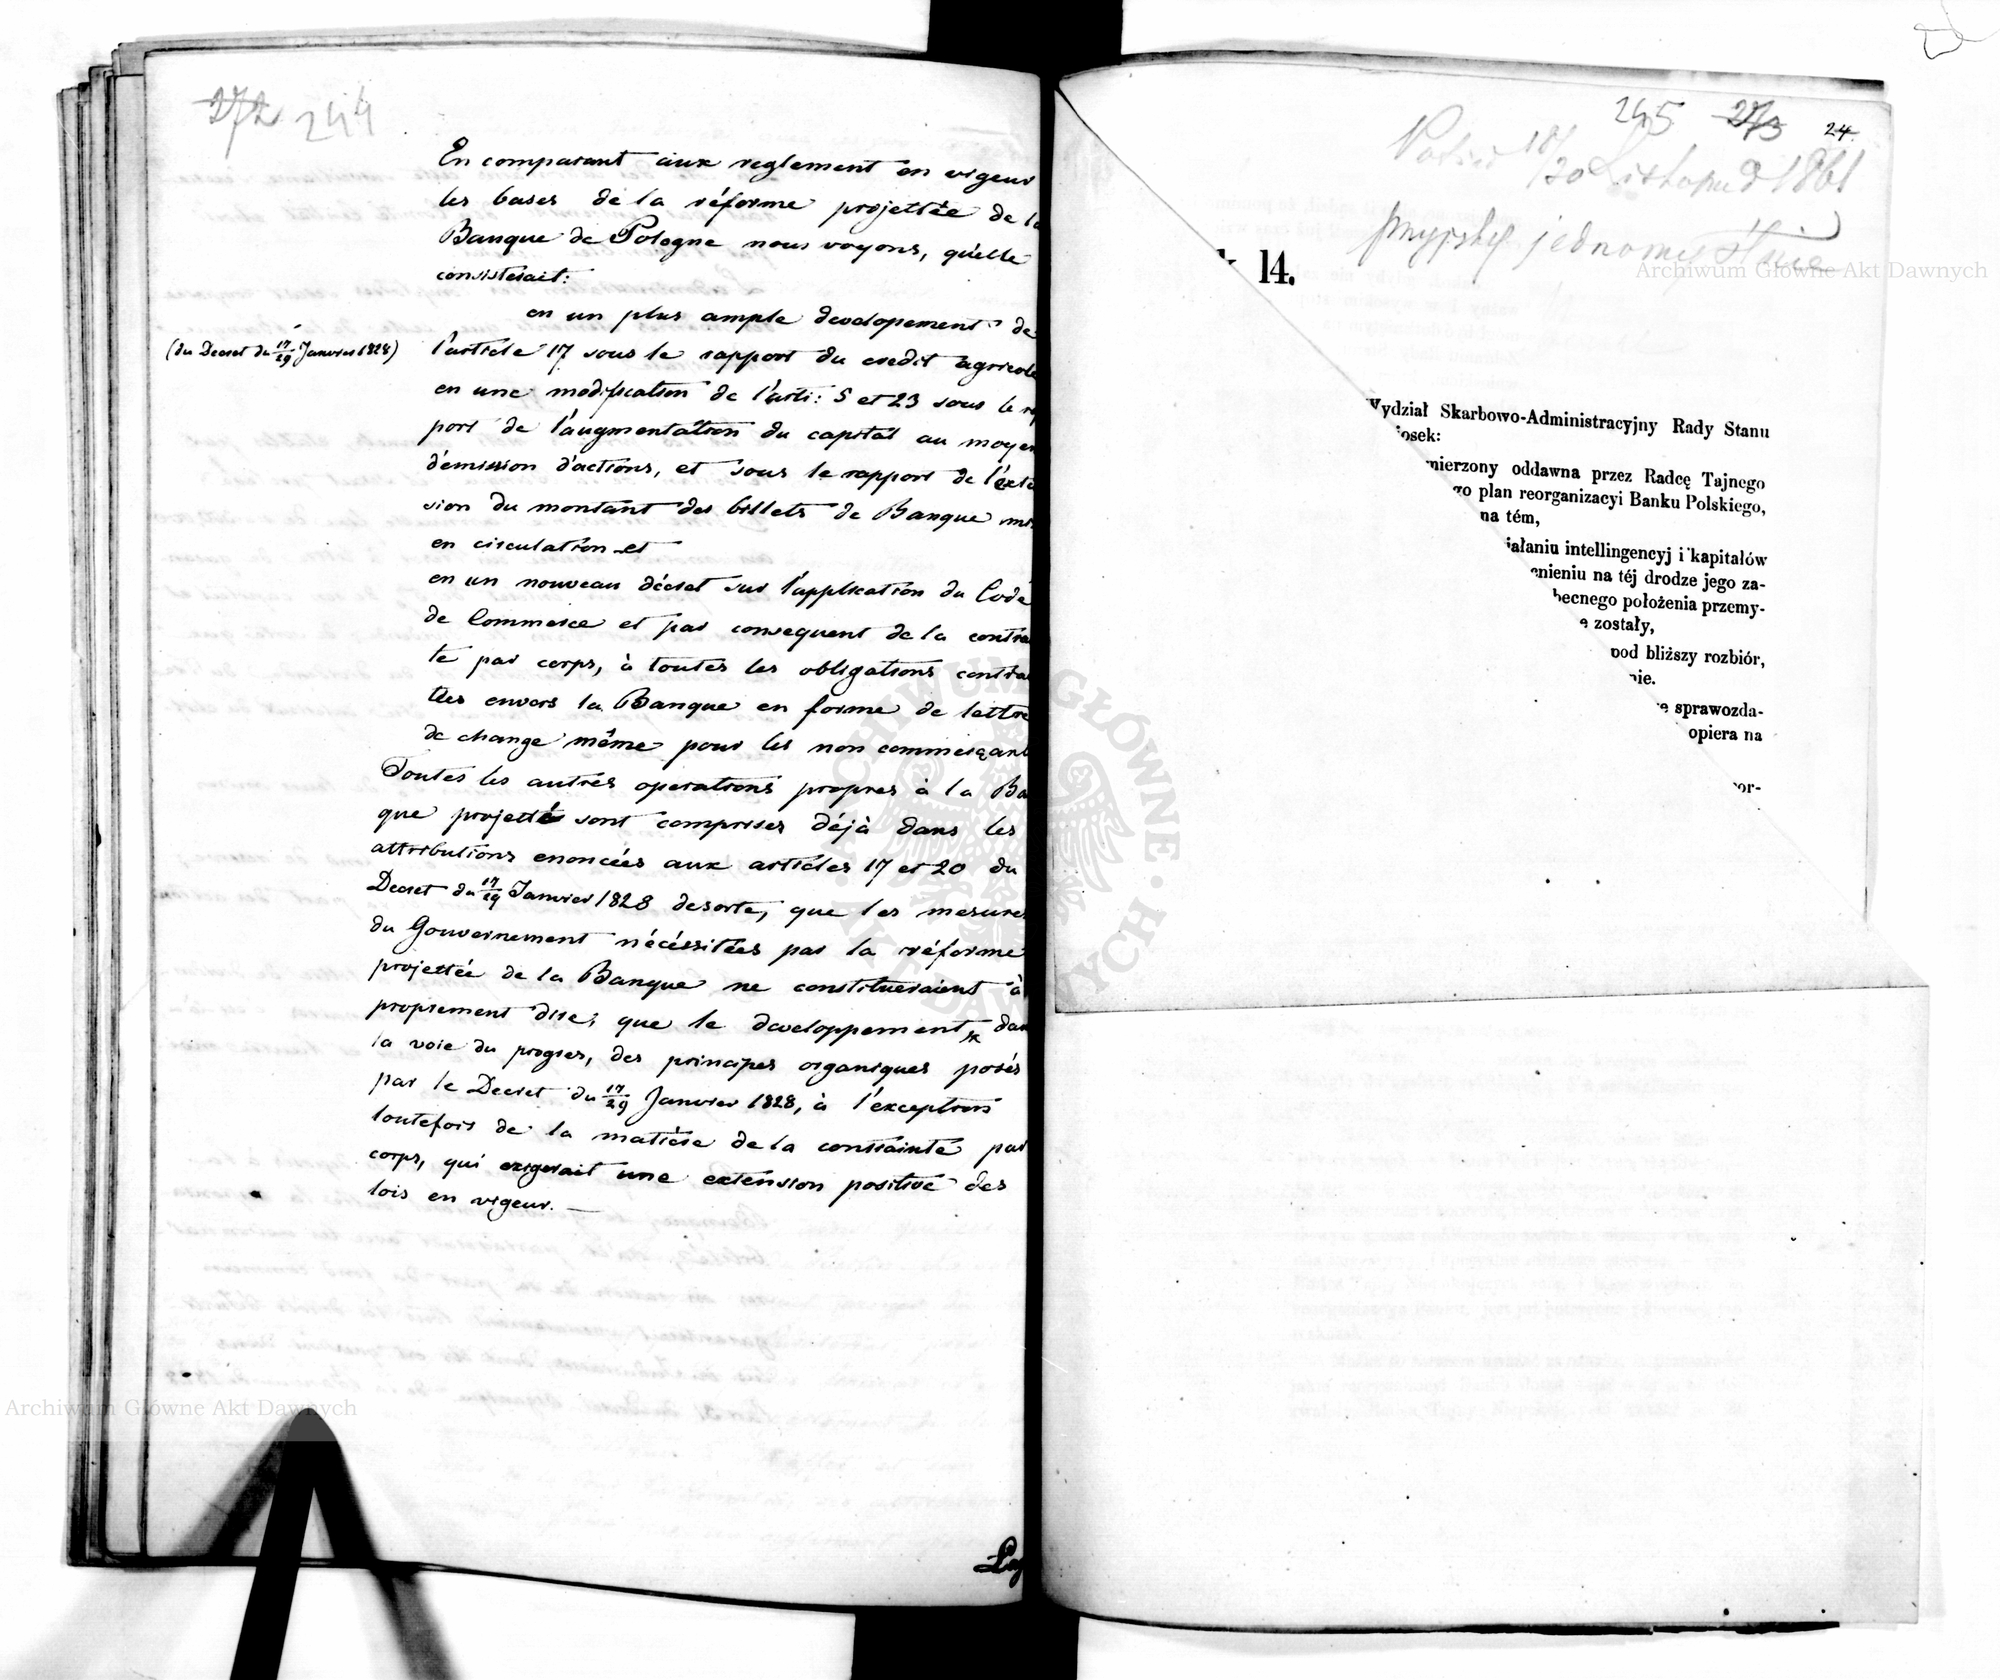 272 244
En comparant aux reglement en vigeur
les bases de la réforme projettée de la
Banque de Pologne nous voyons, qu'elle
consisterait:
en un plus ample developement de
(du Decret du 17/29 Janvier 1828)
l'article 17 sous le rapport du credit agricole
en une modification de l'arti: 5 et 23 sous le rap
port de l'augmentation du capital au moyen
d'emission d'actions, et sous le rapport de l'exten
sion du montant des billets de Banque mis
en circulation et
en un nouveau décret sur l'application du Code
de Commerce et par consequent de la contrain
te par corps, à toutes les obligations contrac
tées envers la Banque en forme de lettre
de change même pour les non commerçant
Toutes les autres operations propres à la Ban
que projetté sont comprises déjà dans les
attributions enoncées aux articles 17 et 20 du
Decret du 17/29 Janvier 1828 desorte, que les mesures
du Gouvernement nécéssitées par la réforme
projettée de la Banque ne constitueraient à
proprement dire, que le developpement dans
la voie du progres, des principes organiques posés
par le Decret du 17/29 Janvier 1828, à l'exception
toutefois de la matière de la contrainte par
corps, qui exigerait une extension positive des
lois en vigeur. —
245 273 24.
18/30 Listopad 1861
przyjęty jednomyślnie
14.
Wydział Skarbowo-Administracyjny Rady Stanu
iosek:
mierzony oddawna przez Radcę Tajnego
go plan reorganizacyi Banku Polskiego,
na tém,
iałaniu intellingencyj i kapitałów
enieniu na téj drodze jego za-
becnego położenia przemy-
e zostały,
pod bliższy rozbiór,
nie.
e sprawozda-
opiera na
or-
Archiwum Główne Akt Dawnych
Archiwum Główne Akt Dawnych
ARCHIWUM GŁÓWNE AKT DAWNYCH